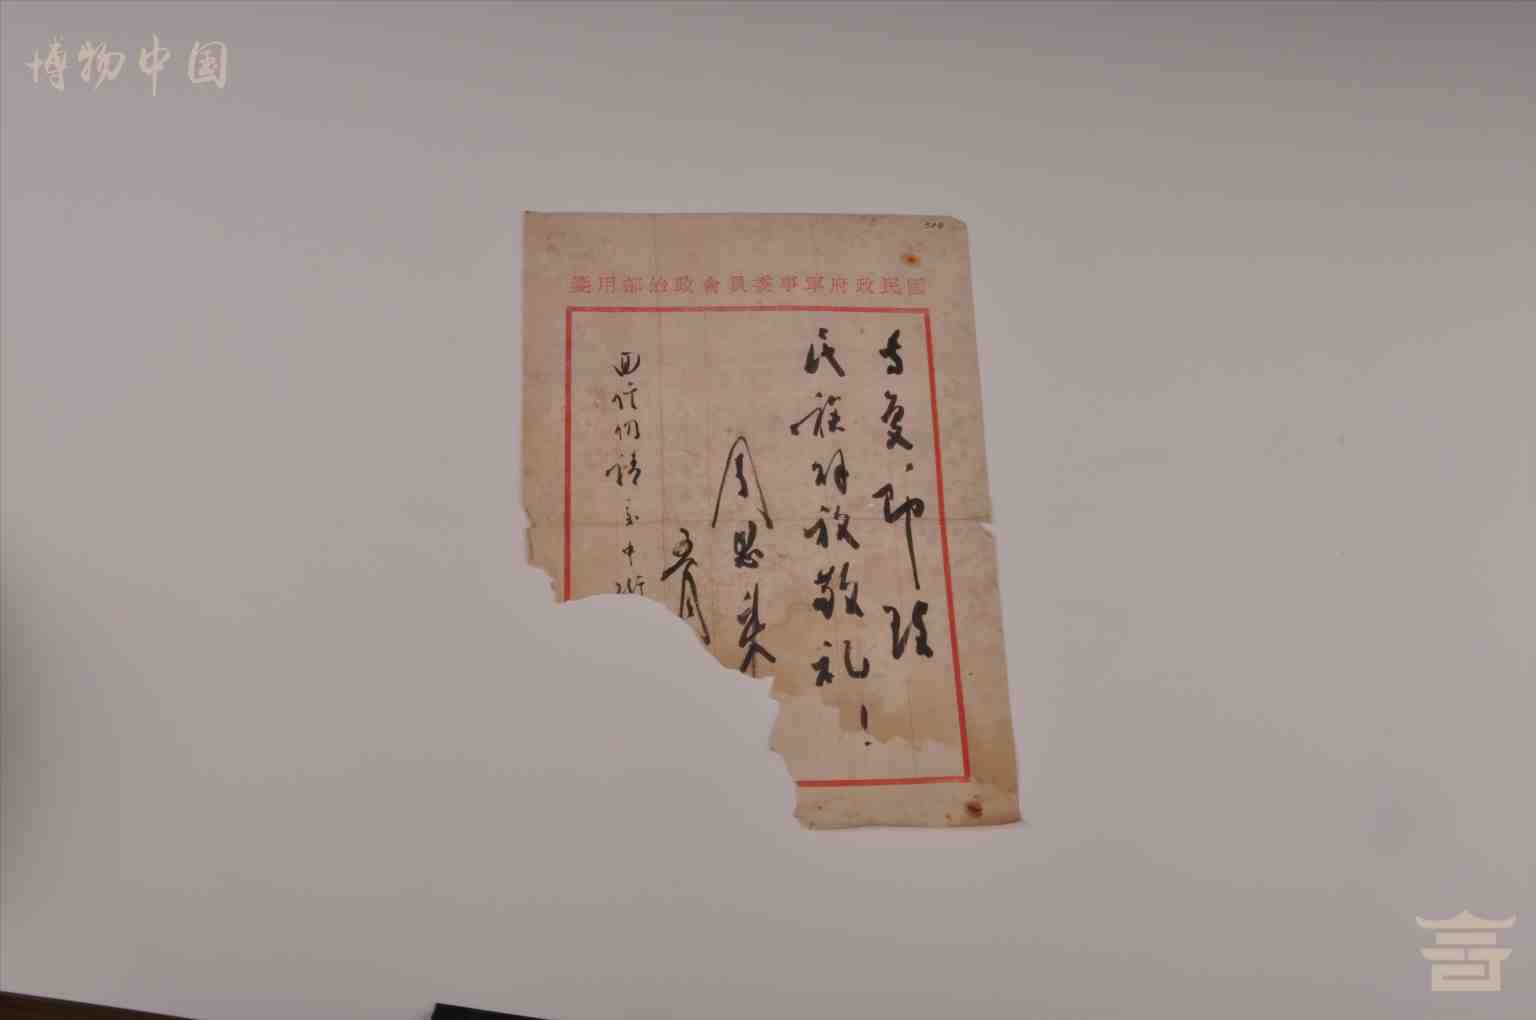 博物中国
國民政府軍事委員會政治部用箋
专复，即致
民族解放敬礼！
周恩来
五月
回信仍请